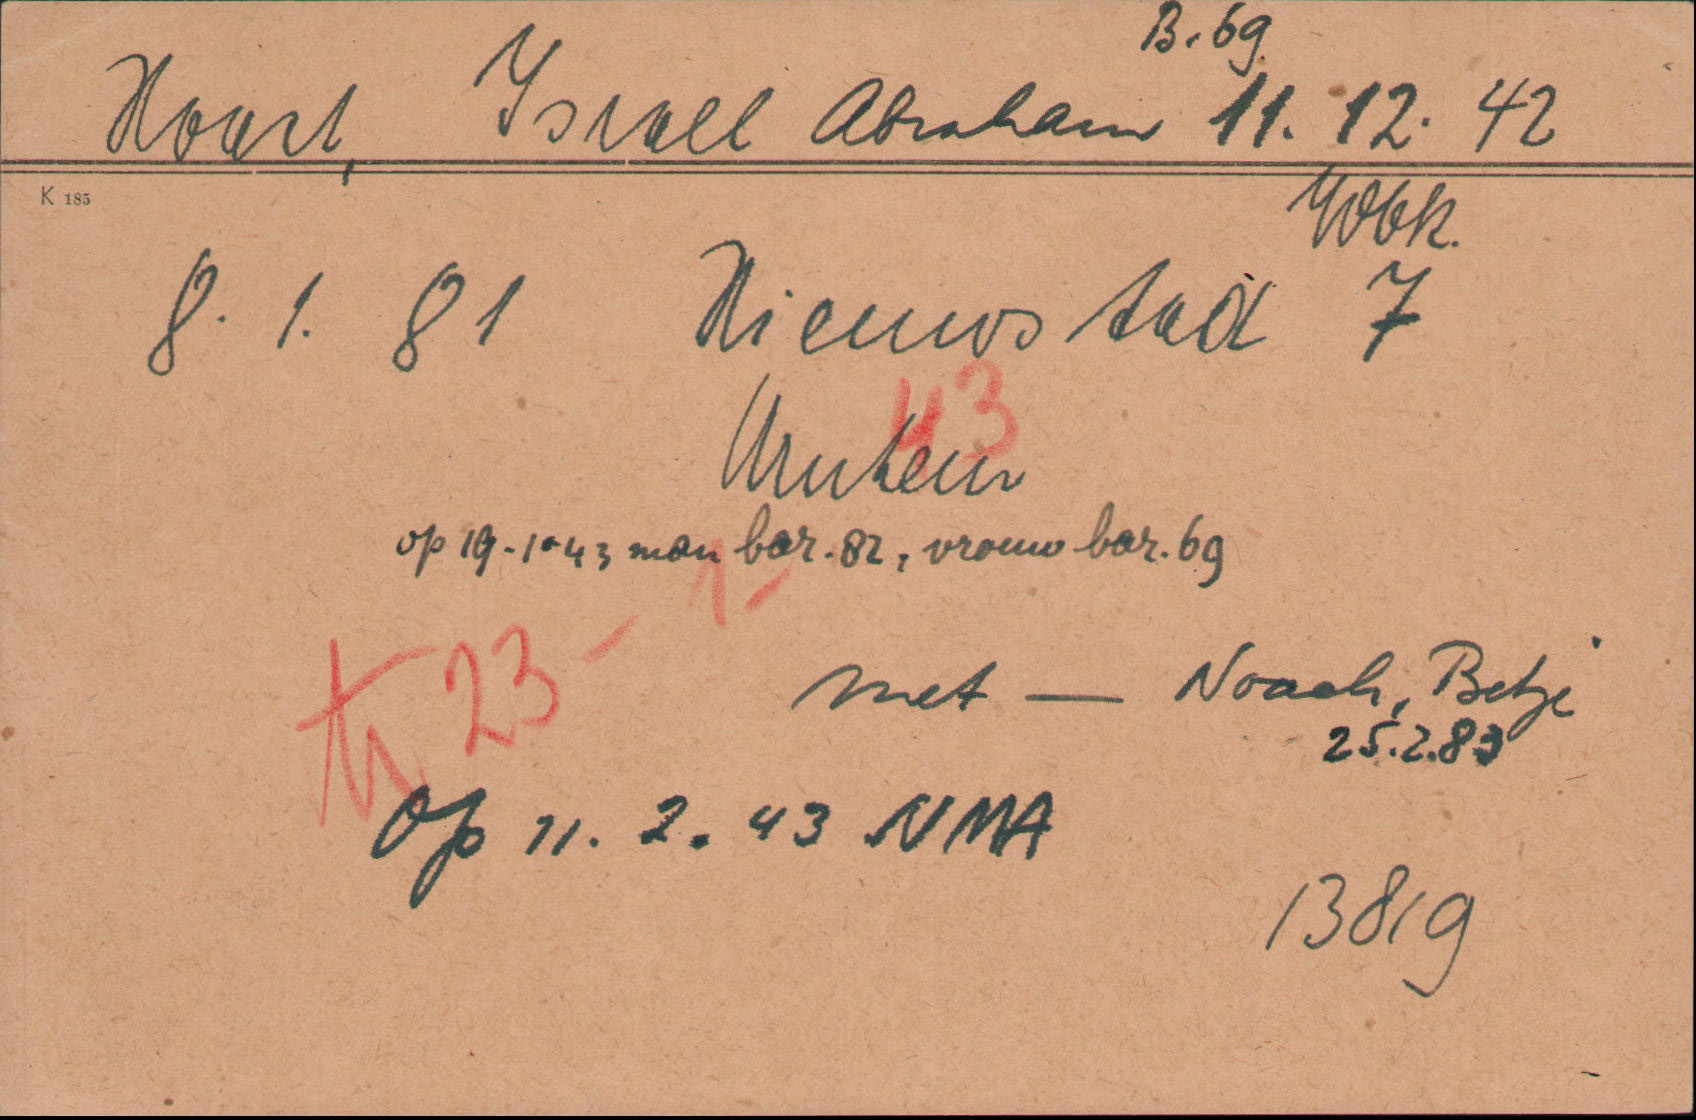 B. 69
Israel Abraham 11. 12. 42
K 185
Wbk.
8. 1. 81 Nieuwstad 7
43
op 19-1-43 man bar. 82, vrouw bar. 69
23 - 1 -
met — Noach, Betje
25.2.83
Op 11. 2. 43 NMA
13819